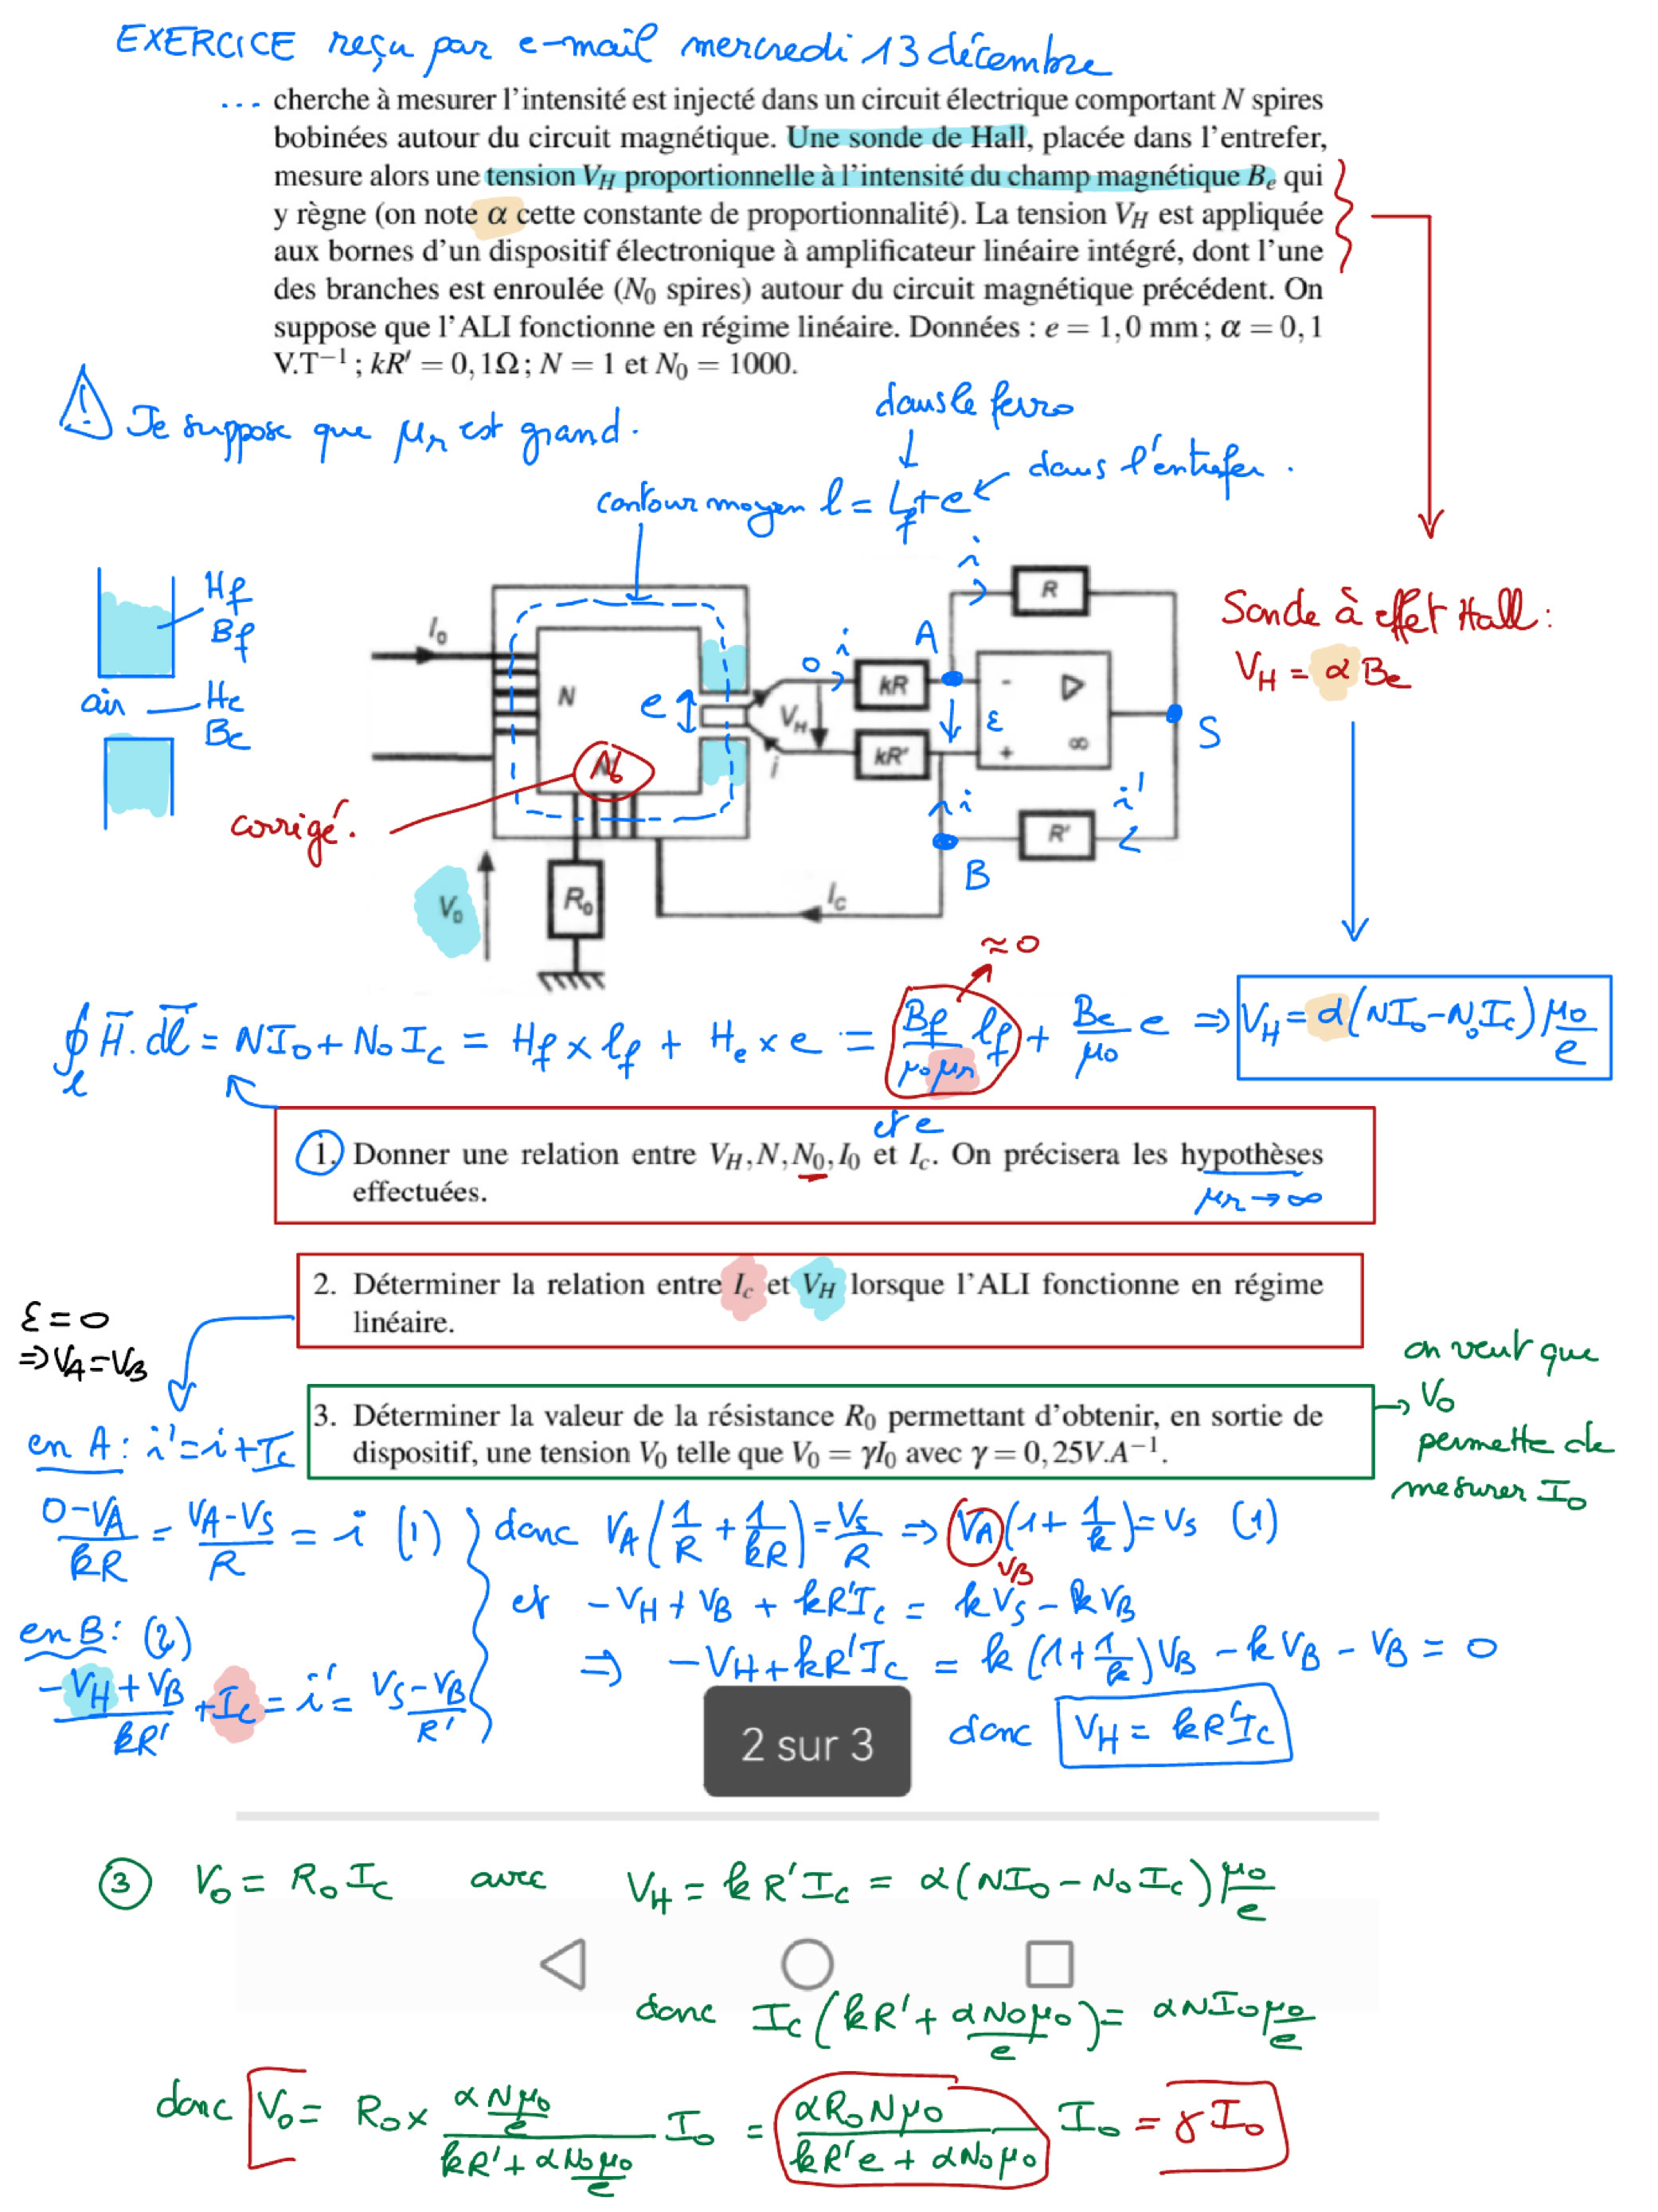 EXERCICE reçu par e-mail mercredi 13 décembre
... cherche à mesurer l'intensité est injecté dans un circuit électrique comportant N spires
bobinées autour du circuit magnétique. Une sonde de Hall, placée dans l'entrefer,
mesure alors une tension V_H proportionnelle à l'intensité du champ magnétique B_e qui
y règne (on note α cette constante de proportionnalité). La tension V_H est appliquée
aux bornes d'un dispositif électronique à amplificateur linéaire intégré, dont l'une
des branches est enroulée (N_0 spires) autour du circuit magnétique précédent. On
suppose que l'ALI fonctionne en régime linéaire. Données : e = 1,0 mm ; α = 0,1
V.T^{-1} ; kR' = 0,1Ω ; N = 1 et N_0 = 1000.
⚠ Je suppose que μ_r est grand.
dans le ferro
dans l'entrefer.
contour moyen l = l_f + e
H_f
B_f
air
H_e
B_e
I_0
N
e
V_H
0
i
kR
A
i
R
-
▷
ε
+
∞
S
kR'
i
i
B
R'
i'
N_0
corrigé.
V_0
R_0
I_c
Sonde à effet Hall :
V_H = α B_e
≈ 0
∮_l H.dl = NI_0 + N_0 I_c = H_f × l_f + H_e × e = B_f/(μ_0 μ_r) l_f + B_e/μ_0 e ⇒ V_H = α(NI_0 - N_0 I_c) μ_0/e
et e
1. Donner une relation entre V_H, N, N_0, I_0 et I_c. On précisera les hypothèses
effectuées.
μ_r → ∞
2. Déterminer la relation entre I_c et V_H lorsque l'ALI fonctionne en régime
linéaire.
ε = 0
⇒ V_A = V_B
3. Déterminer la valeur de la résistance R_0 permettant d'obtenir, en sortie de
dispositif, une tension V_0 telle que V_0 = γI_0 avec γ = 0,25V.A^{-1}.
on veut que
→ V_0
permette de
mesurer I_0
en A : i' = i + I_c
(0 - V_A)/kR = (V_A - V_S)/R = i (1)
donc V_A (1/R + 1/kR) = V_S/R ⇒ V_A (1 + 1/k) = V_S (1)
V_B
et -V_H + V_B + kR'I_c = kV_S - kV_B
en B : (2)
(-V_H + V_B)/kR' + I_c = i' = (V_S - V_B)/R'
⇒ -V_H + kR'I_c = k (1 + 1/k) V_B - kV_B - V_B = 0
2 sur 3
donc V_H = kR'I_c
③ V_0 = R_0 I_c avec V_H = kR'I_c = α(NI_0 - N_0 I_c) μ_0/e
donc I_c (kR' + αN_0μ_0/e) = αNI_0 μ_0/e
donc V_0 = R_0 × (αNμ_0/e)/(kR' + αN_0μ_0/e) I_0 = (αR_0Nμ_0)/(kR'e + αN_0μ_0) I_0 = γI_0